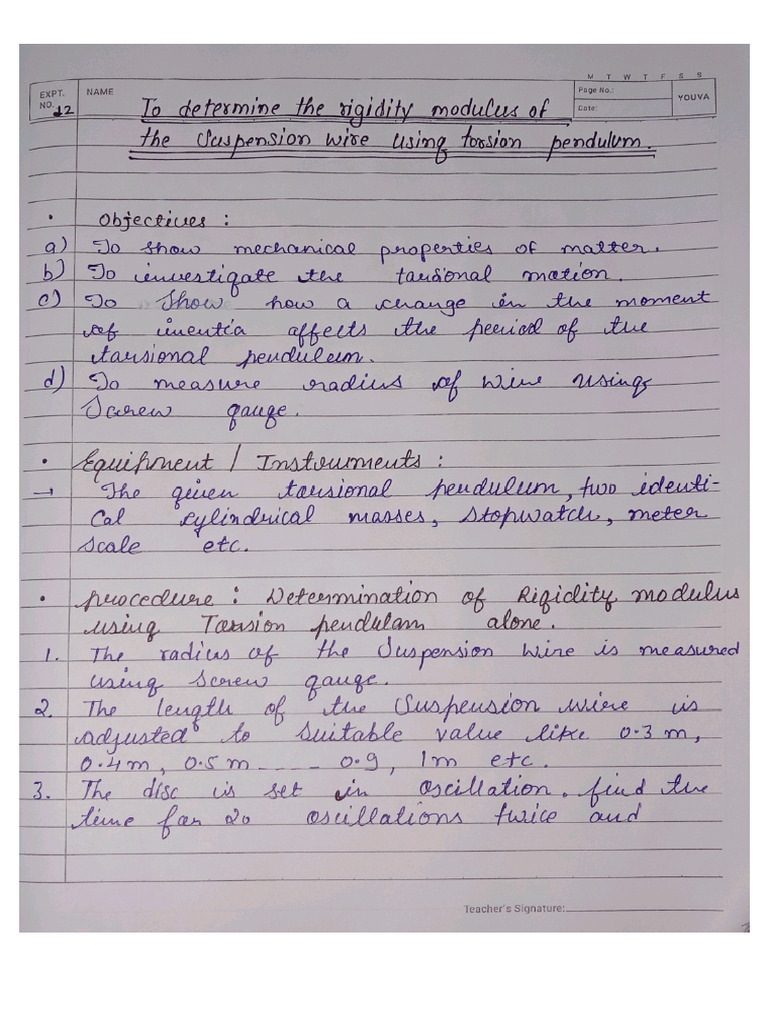 M T W T F S S
EXPT. NO. 12
NAME
Page No.:
Date:
YOUVA
To determine the rigidity modulus of
the Suspension wire using torsion pendulum.
• Objectives :
a) To show mechanical properties of matter.
b) To investigate the tarsional motion.
c) To Show how a change in the moment
of inentia affects the period of the
tarsional penduleum.
d) To measure radius of wire using
Screw gauge.
• Equipment / Instruments :
→ The given tarsional pendulum, two identi-
cal cylindrical masses, stopwatch, meter
scale etc.
• Procedure : Determination of Rigidity modulus
using Torsion pendulam alone.
1. The radius of the Suspension wire is measured
using screw gauge.
2. The length of the Suspension wire is
adjusted to suitable value like 0.3 m,
0.4m, 0.5 m ---- 0.9, 1m etc.
3. The disc is set in oscillation. find the
time for 20 oscillations twice and
Teacher's Signature: